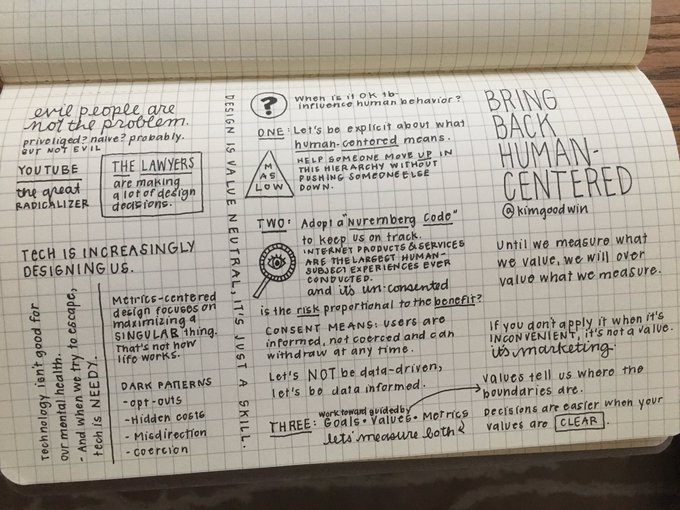 evil people are
not the problem.
priviliged? naive? probably.
BUT NOT EVIL
YOUTUBE
the great
RADICALIZER
THE LAWYERS
are making
a lot of design
decisions.
TECH IS INCREASINGLY
DESIGNING US.
Technology isn't good for
our mental health.
- And when we try to escape,
tech is NEEDY.
Metrics-centered
design focuses on
maximizing a
SINGULAR thing.
That's not how
life works.
DARK PATTERNS
- opt-outs
- Hidden costs
- Misdirection
- coercion
DESIGN IS VALUE NEUTRAL, IT'S JUST A SKILL.
?
When is it OK to
influence human behavior?
ONE: Let's be explicit about what
human-centered means.
MAS
LOW
HELP SOMEONE MOVE UP IN
THIS HIERARCHY WITHOUT
PUSHING SOMEONE ELSE
DOWN.
TWO: Adopt a "Nuremberg Code"
to keep us on track.
INTERNET PRODUCTS & SERVICES
ARE THE LARGEST HUMAN-
SUBJECT EXPERIENCES EVER
CONDUCTED.
and its un-consented
is the risk proportional to the benefit?
CONSENT MEANS: users are
informed, not coerced and can
withdraw at any time.
Let's NOT be data-driven,
let's be data informed.
work toward guided by
THREE: Goals • Values • Metrics
lets' measure both
BRING
BACK
HUMAN-
CENTERED
@kimgoodwin
Until we measure what
we value, we will over
value what we measure.
If you don't apply it when it's
INCONVENIENT, it's not a value.
its marketing.
values tell us where the
boundaries are.
Decisions are easier when your
values are CLEAR.